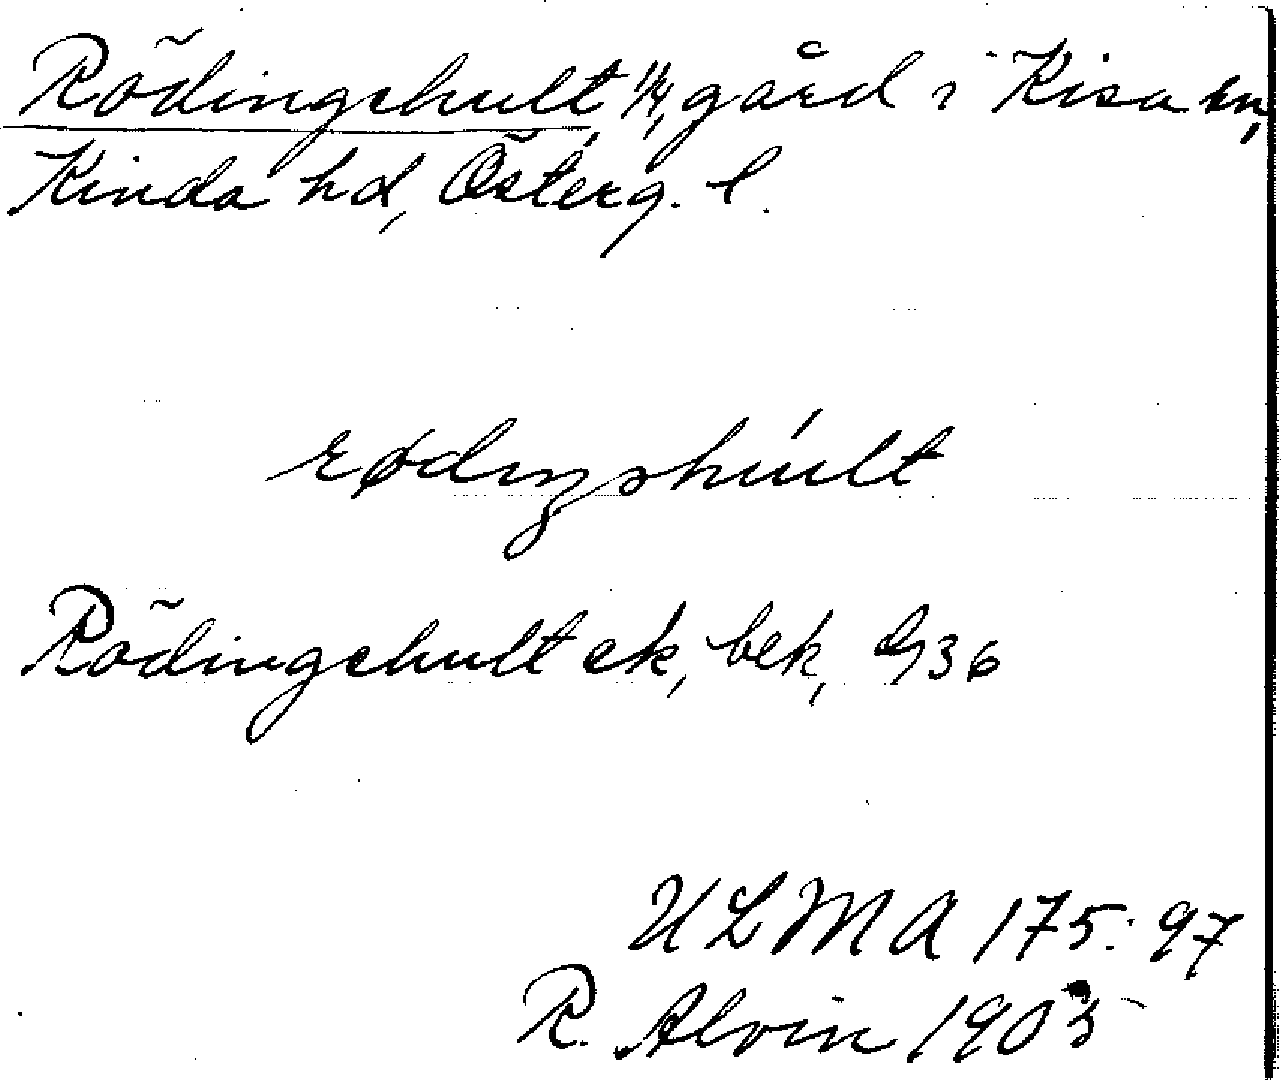 Rödingshult 1/4, gård i Kisa sn,
Kinda hd, Österg. l.
rødıŋshúlt
Rödingshult ek, bek, G36
ULMA 175:97
R. Alvin 1905